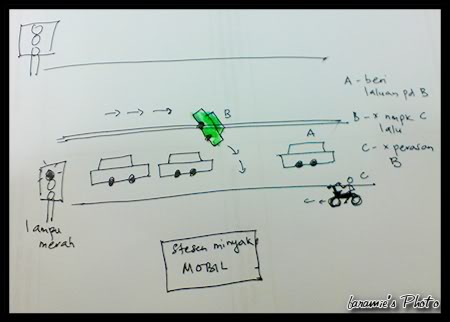 A - beri
laluan pd B
B
B - x nmpk C
lalu
A
C - x perasan
B
C
C
lampu
merah
stesen minyak
MOBIL
laramie's Photo